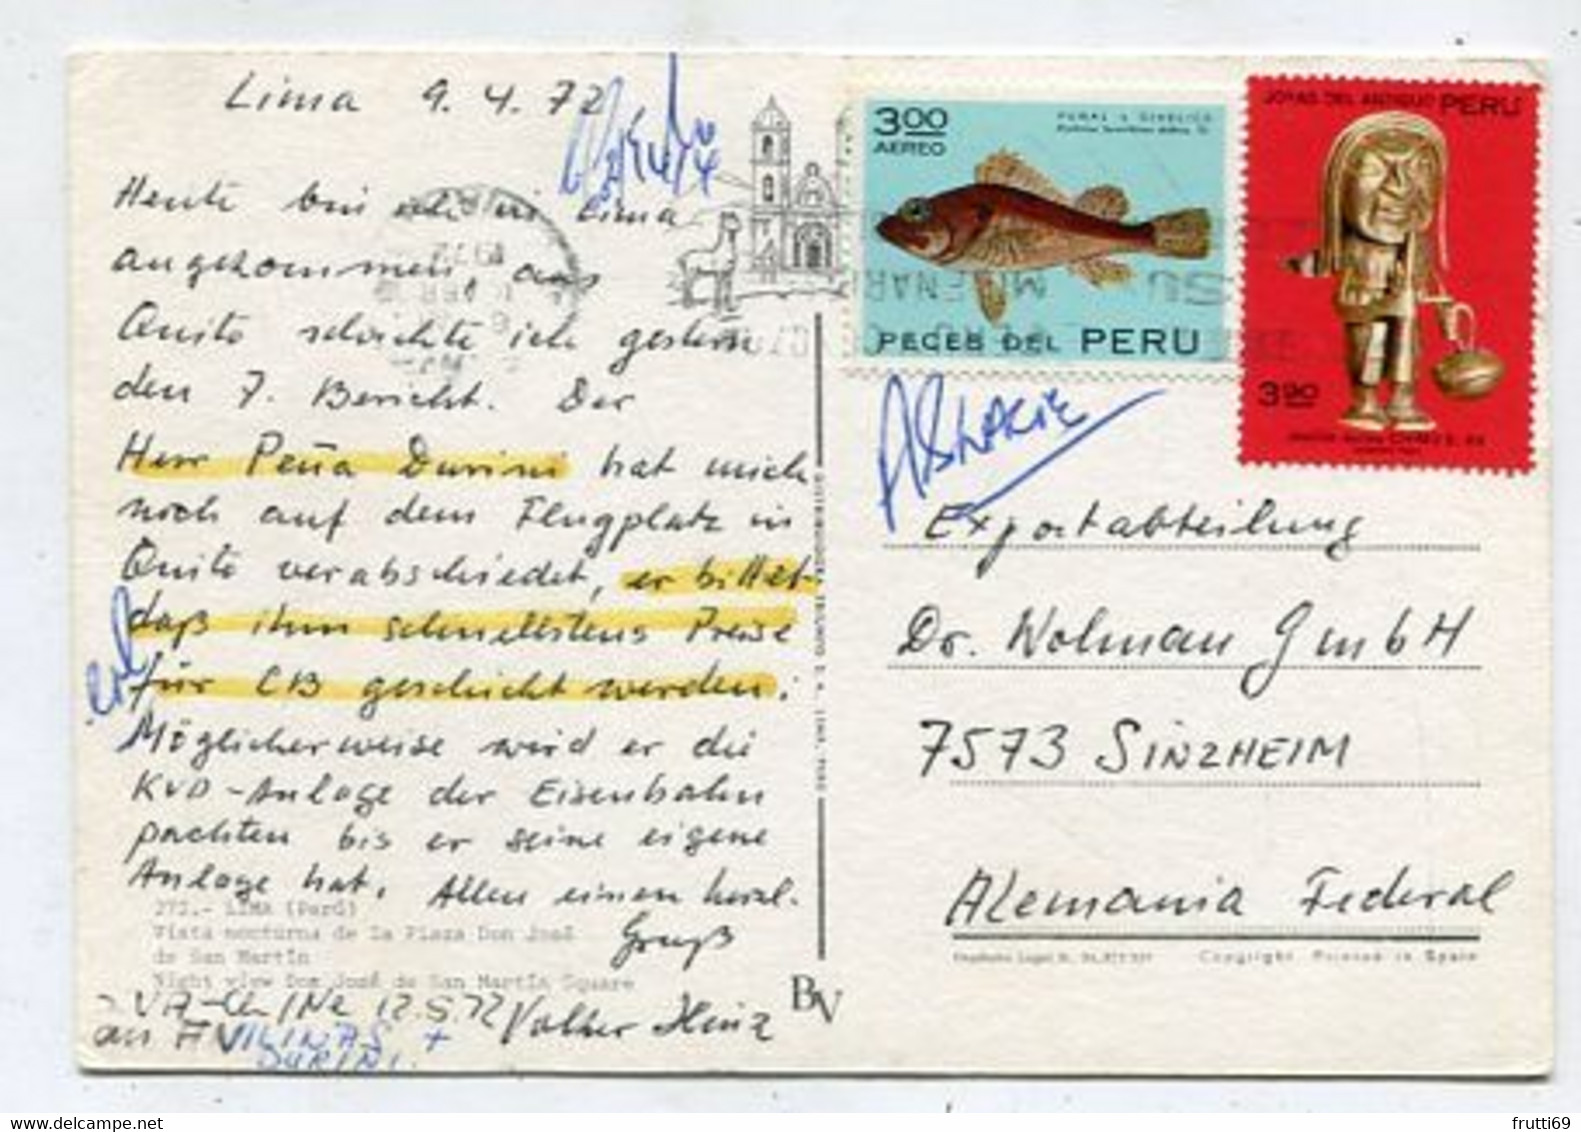 Lima 9. 4. 72
Heute bin ich in Lima
angekommen, aus
Quito schickte ich gestern
den 7. Bericht. Der
Herr Peña Durini hat mich
noch auf dem Flugplatz in
Quito verabschiedet, er bittet
daß ihm schnellstens Preise
für CB geschickt werden.
Möglicherweise wird er die
KVD-Anlage der Eisenbahn
pachten bis er seine eigene
Anlage hat. Allen einen herzl.
Gruß
Volker Heinz
272.- LIMA (Perú)
Vista nocturna de la Plaza Don José
de San Martín
Night view Don José de San Martín Square
12.5.72
an
DURINI.
BV
3.00
AEREO
PECES DEL PERU
JOYAS DEL ANTIGUO PERU
3.90
Exportabteilung
Dr. Wolman GmbH
7573 SINZHEIM
Alemania Federal
Copyright Printed in Spain
frutti69